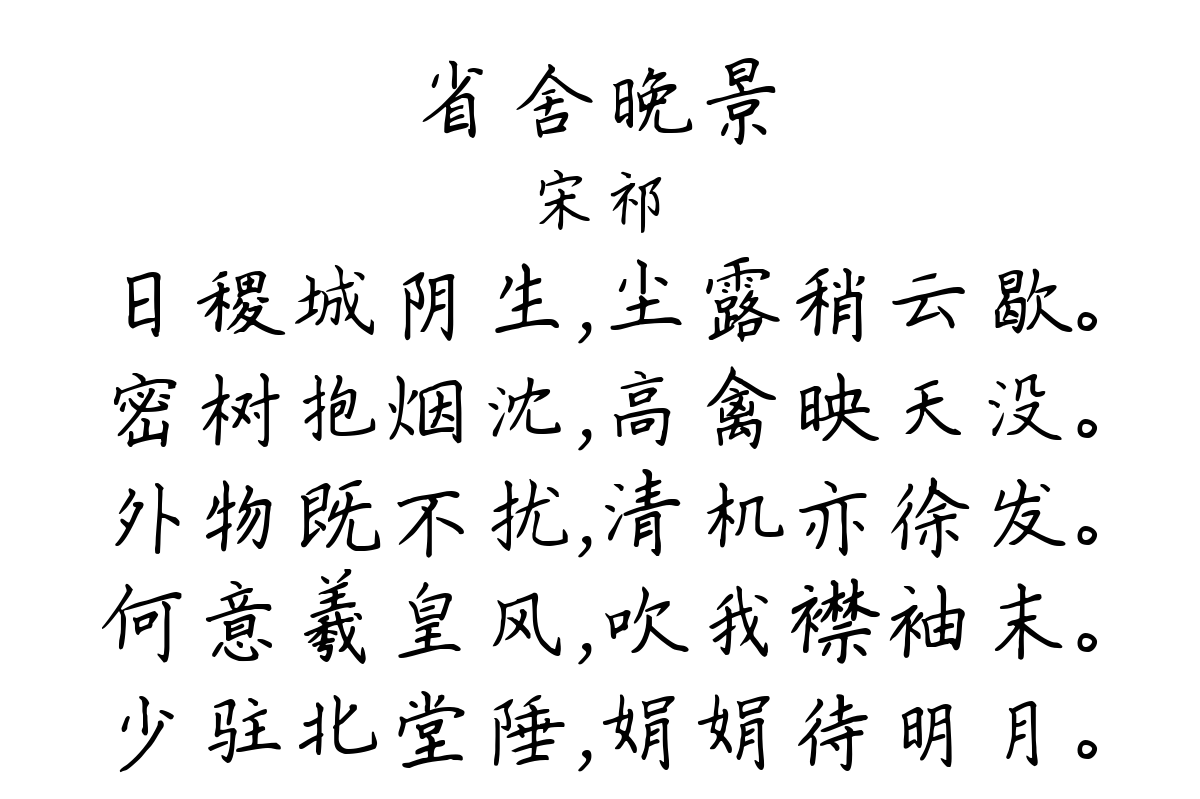 省舍晚景
宋祁
日稷城阴生,尘露稍云歇。
密树抱烟沈,高禽映天没。
外物既不扰,清机亦徐发。
何意羲皇风,吹我襟袖末。
少驻北堂陲,娟娟待明月。